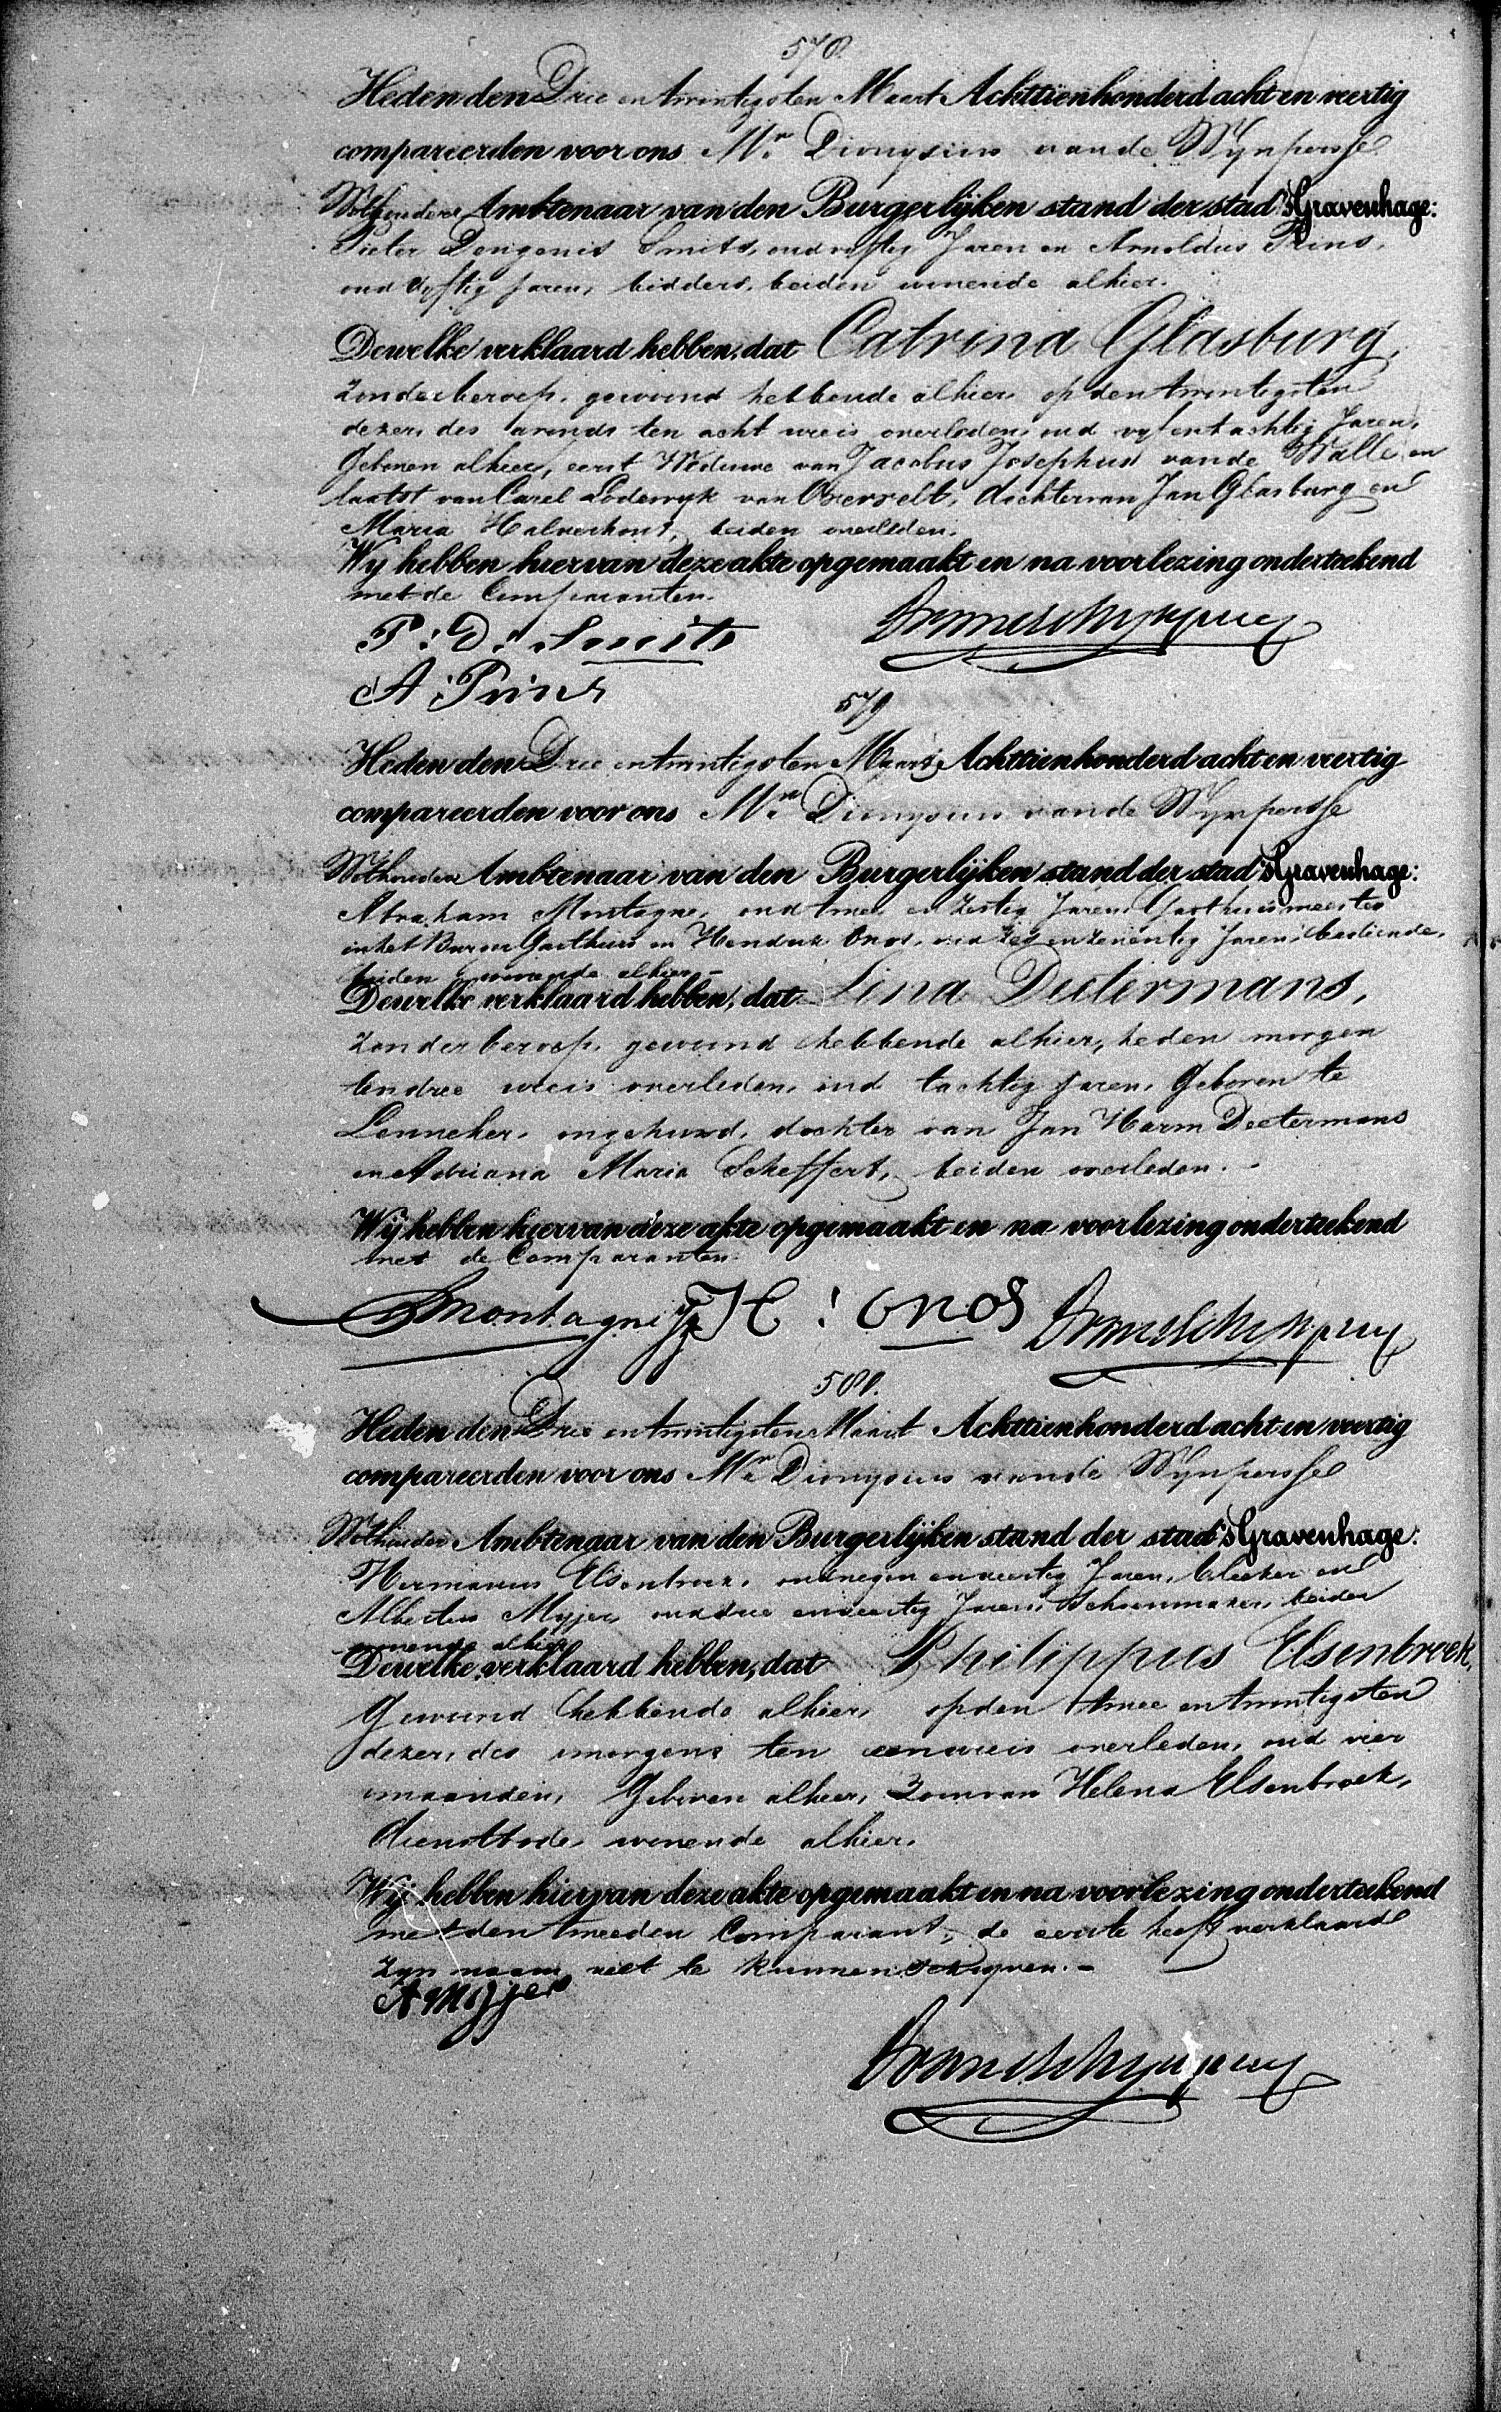 578.
Heden den Drie en twintigsten Maart Achttienhonderd acht en veertig
compareerden voor ons Mr. Dionysius van de Wynpersse
Wethouder Ambtenaar van den Burgerlijken stand der stad 's Gravenhage:
Pieter Smits, oud vyftig Jaren en Arnoldus Prins,
oud vyftig Jaren, bidders, beiden wonende alhier.
Dewelke verklaard hebben, dat Catrina Glasburg,
zonder beroep, gewoond hebbende alhier, op den twintigsten
dezer, des avonds ten acht ure is overleden, oud vyf en tachtig Jaren,
Geboren alhier, eerst Weduwe van Jacobus Josephus van de Walle en
laatst van Carel Lodewyk van Overvelt, dochter van Jan Glasburg en
Maria Halverhout, beiden overleden.
Wy hebben hiervan deze akte opgemaakt en na voorlezing onderteekend
met de Comparanten.
P: D: Smits
A Prins
579
Heden den Drie en twintigsten Maart Achttienhonderd acht en veertig
compareerden voor ons Mr. Dionysius van de Wynpersse
Wethouder Ambtenaar van den Burgerlijken stand der stad 's Gravenhage:
Abraham Montagne, oud twee en zestig Jaren, Gasthuismeester
in het Burger Gasthuis en Hendrik Onos, oud zes en zeventig Jaren, bediende,
beiden wonende alhier.
Dewelke verklaard hebben, dat Lina Deetermans,
zonder beroep, gewoond hebbende alhier, heden morgen
ten drie ure is overleden, oud tachtig Jaren, Geboren te
Lonneker, ongehuwd, dochter van Jan Harm Deetermans
en Adriana Maria Scheffert, beiden overleden.
Wij hebben hiervan deze akte opgemaakt en na voorlezing onderteekend
met de Comparanten.
Montagne H: Onos
580.
Heden den Drie en twintigsten Maart Achttienhonderd acht en veertig
compareerden voor ons Mr. Dionysius van de Wynpersse
Wethouder Ambtenaar van den Burgerlijken stand der stad 's Gravenhage:
Hermanus Elsenbroek, oud negen en veertig Jaren, bleeker en
Albertus Myjer, oud drie en veertig Jaren, Schoenmaker, beiden
wonende alhier
Dewelke verklaard hebben, dat Philippus Elsenbroek,
Gewoond hebbende alhier, op den twee en twintigsten
dezer, des morgens ten een ure is overleden, oud vier
maanden, Geboren alhier, Zoon van Helena Elsenbroek,
dienstbode, wonende alhier.
Wij hebben hiervan deze akte opgemaakt en na voorlezing onderteekend
met den tweeden Comparant, de eerste heeft verklaard
zyn naam niet te kunnen schryven.
A Myjer